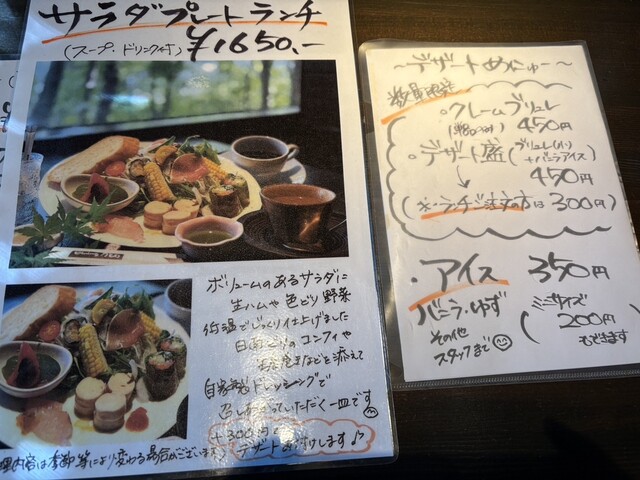 サラダプレートランチ
(スープ・ドリンク付) ¥1650.-
ボリュームのあるサラダに
生ハムや色どり野菜
低温でじっくり仕上げました
コンフィや
などを添えて
自家製ドレッシングで
召し上がっていただく一皿です
+300円で
デザートお付けします♪
内容は季節等により変わる場合がございます
～デザートめにゅー～
数量限定
・クレームブリュレ
450円
・デザート盛(ブリュレ(小)
+バニラアイス)
450円
(※ランチご注文の方は300円)
・アイス 350円
バニラ・ゆず
その他
スタッフまで
(ミニサイズ
200円
もできます)